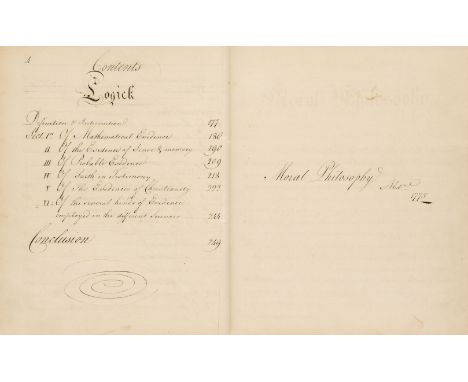 Contents
Logick
Definition & Introduction 177
Sect. 1st Of Mathematical Evidence 186
II Of the Evidence of Sense & memory 190
III Of Probable Evidence 209
IV Of Faith in Testimony 218
V Of the Evidences of Christianity 222
VI Of the several kinds of Evidence
employed in the different Sciences 244
Conclusion 249
Moral Philosophy
1778